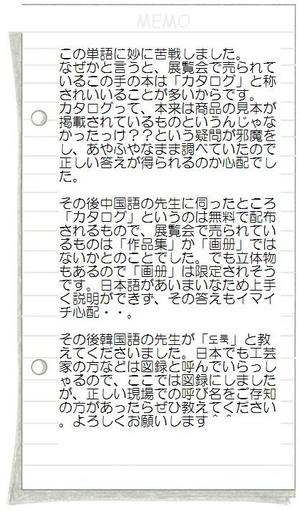 MEMO
この単語に妙に苦戦しました。
なぜかと言うと、展覧会で売られて
いるこの手の本は「カタログ」と称
されいいることが多いからです。
カタログって、本来は商品の見本が
掲載されているものというんじゃな
かったっけ??という疑問が邪魔を
し、あやふやなまま調べていたので
正しい答えが得られるのか心配でし
た。
その後中国語の先生に伺ったところ
「カタログ」というのは無料で配布
されるもので、展覧会で売られてい
るものは「作品集」か「画册」では
ないかとのことでした。でも立体物
もあるので「画册」は限定されそう
です。日本語があいまいなため上手
く説明ができず、その答えもイマイ
チ心配・・。
その後韓国語の先生が「도록」と教
えてくださいました。日本でも工芸
家の方などは図録と呼んでいらっし
ゃるので、ここでは図録にしました
が、正しい現場での呼び名をご存知
の方があったらぜひ教えてください
。よろしくお願いします^^